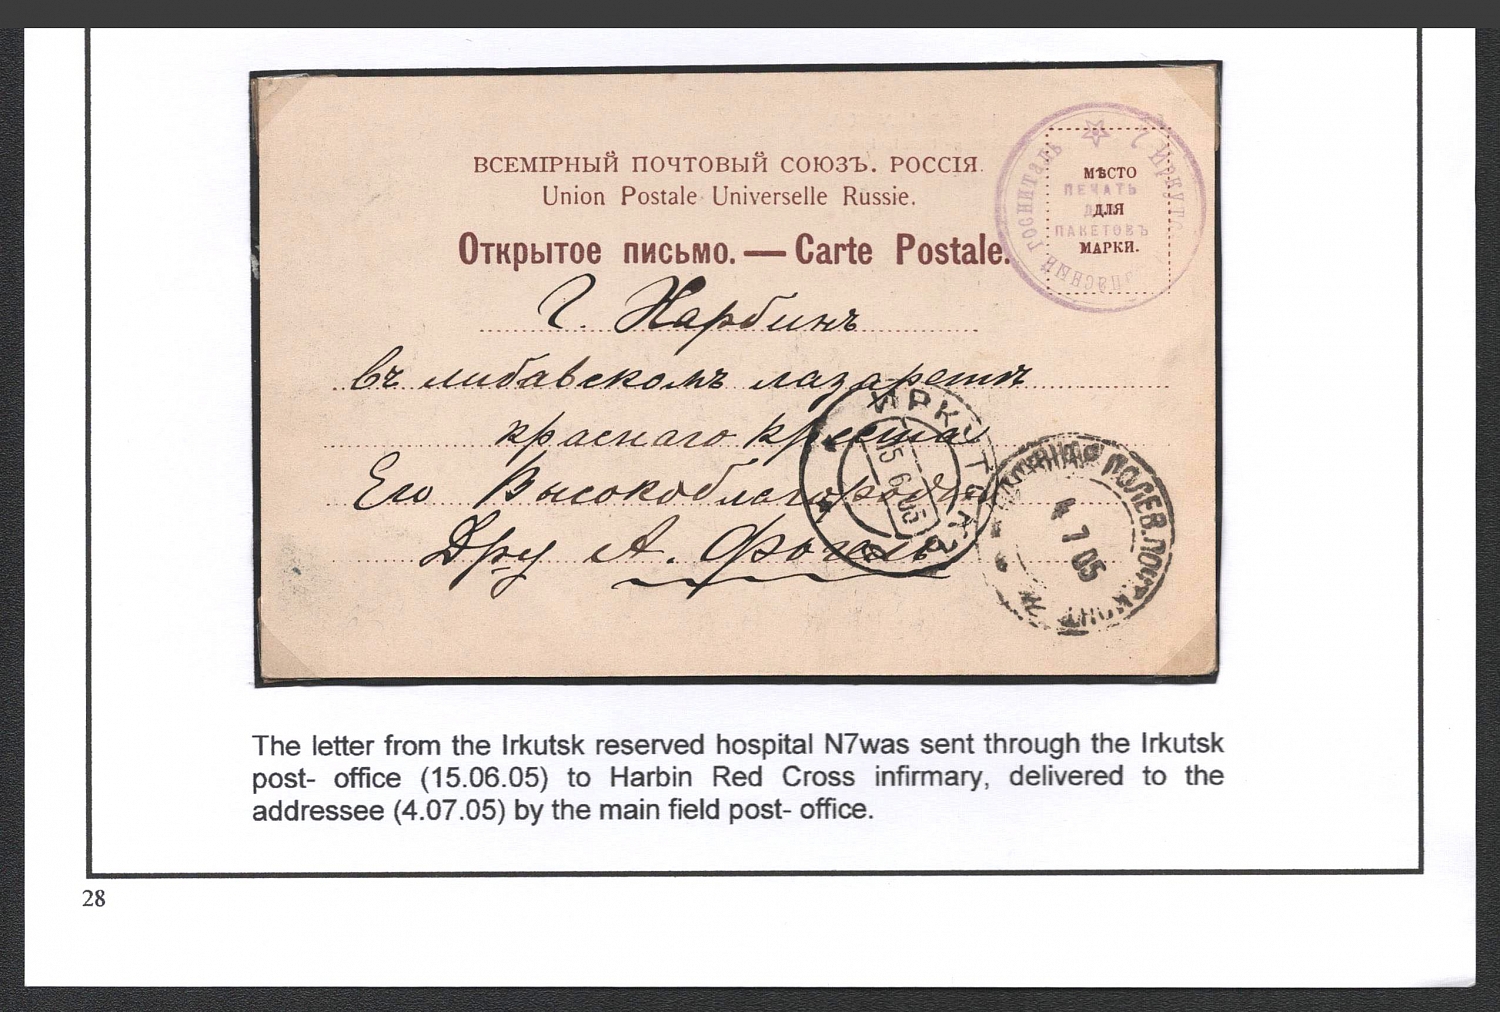 ВСЕМІРНЫЙ ПОЧТОВЫЙ СОЮЗЪ. РОССІЯ.
Union Postale Universelle Russie.
Открытое письмо. — Carte Postale.
МѢСТО
ДЛЯ
МАРКИ.
ПЕЧАТЬ
ДЛЯ
ПАКЕТОВЪ
7 Иркутс
пасный Госпиталь
Г. Харбинъ
въ либавскомъ лазаретѣ
краснаго креста
Его Высокоблагородію
Дру А. Фогель
ИРКУТСКЪ
15 6 05
ПОЛЕВ. ПОЧТ. КОНТ
4 7 05
The letter from the Irkutsk reserved hospital N7was sent through the Irkutsk
post- office (15.06.05) to Harbin Red Cross infirmary, delivered to the
addressee (4.07.05) by the main field post- office.
28